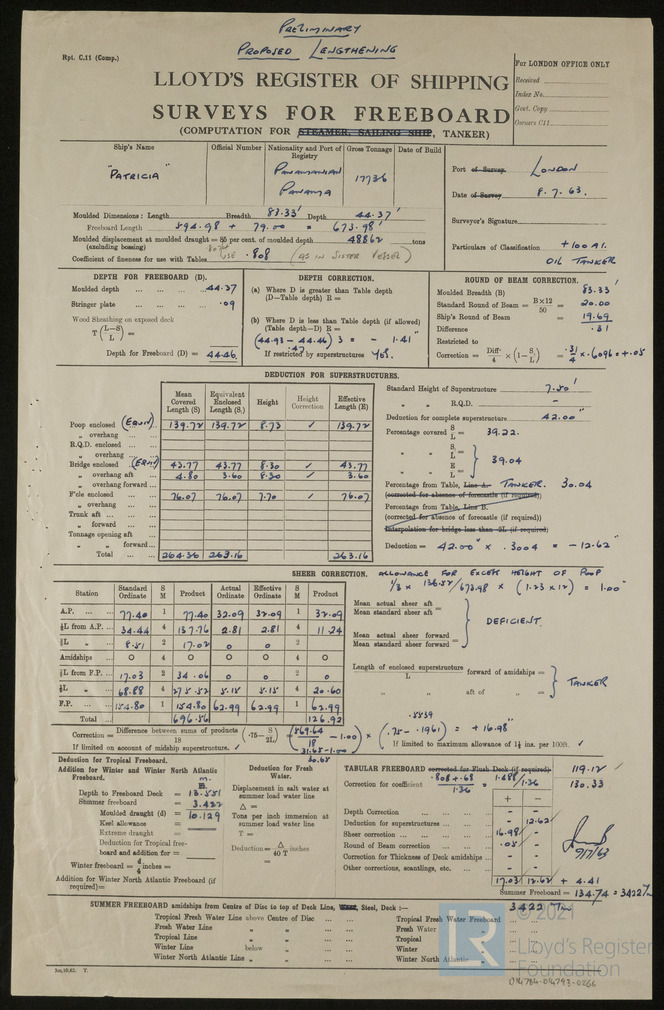 PRELIMINARY
PROPOSED LENGTHENING
Rpt. C.11 (Comp.)
LLOYD'S REGISTER OF SHIPPING
SURVEYS FOR FREEBOARD
(COMPUTATION FOR STEAMER, SAILING SHIP, TANKER)
For LONDON OFFICE ONLY
Received
Index No.
Govt. Copy
Owners C11
Ship's Name Official Number Nationality and Port of Registry Gross Tonnage Date of Build
"PATRICIA" PANAMANIAN PANAMA 17736
Port of Survey LONDON
Date of Survey 8.7.63.
Surveyor's Signature
Particulars of Classification +100 A1. OIL TANKER
Moulded Dimensions: Length Breadth 83.33' Depth 44.37'
Freeboard Length 594.98 + 79.00 = 673.98'
Moulded displacement at moulded draught = 85 per cent. of moulded depth 48862 tons
(excluding bossing)
Coefficient of fineness for use with Tables USE .808 (AS IN SISTER VESSEL)
DEPTH FOR FREEBOARD (D).
Moulded depth 44.37
Stringer plate .09
Wood Sheathing on exposed deck
T (L-S/L) =
Depth for Freeboard (D) = 44.46
DEPTH CORRECTION.
(a) Where D is greater than Table depth
(D—Table depth) R =
(b) Where D is less than Table depth (if allowed)
(Table depth—D) R =
(44.93 - 44.46) 3 = - 1.41"
.47
If restricted by superstructures YES.
ROUND OF BEAM CORRECTION.
Moulded Breadth (B) 83.33'
Standard Round of Beam = B×12/50 = 20.00
Ship's Round of Beam = 19.69
Difference .31
Restricted to
Correction = Diff./4 × (1-S/L) = .31/4 × .6096 = +.05
DEDUCTION FOR SUPERSTRUCTURES.
Mean Covered Length (S) Equivalent Enclosed Length (S₁) Height Height Correction Effective Length (E)
Poop enclosed (EQUIV) 139.72 139.72 8.73 ✓ 139.72
„ overhang
R.Q.D. enclosed
„ overhang
Bridge enclosed (EQUIV) 43.77 43.77 8.30 ✓ 43.77
„ overhang aft 4.80 3.60 8.30 ✓ 3.60
„ overhang forward
F'cle enclosed 76.07 76.07 7.70 ✓ 76.07
„ overhang
Trunk aft
„ forward
Tonnage opening aft
„ „ forward
Total 264.36 263.16 263.16
Standard Height of Superstructure 7.50'
„ „ R.Q.D. -
Deduction for complete superstructure 42.00"
Percentage covered S/L = 39.22
„ „ S₁/L =
„ „ E/L = 39.04
Percentage from Table, Line A. TANKER. 30.04
(corrected for absence of forecastle (if required))
Percentage from Table, Line B.
(corrected for absence of forecastle (if required))
Interpolation for bridge less than ·2L (if required)
Deduction = 42.00" × .3004 = -12.62"
SHEER CORRECTION. ALLOWANCE FOR EXCESS HEIGHT OF POOP
1/3 × 136.52/673.98 × (1.23 × 12) = 1.00"
Station Standard Ordinate S M Product Actual Ordinate Effective Ordinate S M Product
A.P. 77.40 1 77.40 32.09 32.09 1 32.09
⅙L from A.P. 34.44 4 137.76 2.81 2.81 4 11.24
⅓L „ 8.51 2 17.02 0 0 2
Amidships 0 4 0 0 0 4 0
⅓L from F.P. 17.03 2 34.06 0 0 2 0
⅙L „ 68.88 4 275.52 5.15 5.15 4 20.60
F.P. 154.80 1 154.80 62.99 62.99 1 62.99
Total 696.56 126.92
Mean actual sheer aft =
Mean standard sheer aft
Mean actual sheer forward =
Mean standard sheer forward
DEFICIENT.
Length of enclosed superstructure/L forward of amidships =
„ „ aft of „ =
TANKER
Correction = Difference between sums of products/18 (·75-S/2L) = (569.64/18 - 1.00) × (.75 - .1961) = + 16.98"
.5539
31.65-1.00
30.65
If limited on account of midship superstructure. ✓ If limited to maximum allowance of 1½ ins. per 100ft. ✓
Deduction for Tropical Freeboard.
Addition for Winter and Winter North Atlantic Freeboard.
Depth to Freeboard Deck = 13.551
Summer freeboard = 3.422
Moulded draught (d) = 10.129
Keel allowance =
Extreme draught =
Deduction for Tropical freeboard and addition for =
Winter freeboard = d/4 inches =
Addition for Winter North Atlantic Freeboard (if required)=
Deduction for Fresh Water.
Displacement in salt water at summer load water line
Δ =
Tons per inch immersion at summer load water line
T =
Deduction = Δ/40 T inches
=
TABULAR FREEBOARD corrected for Flush Deck (if required) 119.12"
Correction for coefficient .808+.68/1.36 = 1.488/1.36 130.33
+ -
Depth Correction - -
Deduction for superstructures - 12.62
Sheer correction 16.98 -
Round of Beam correction .05 -
Correction for Thickness of Deck amidships - -
Other corrections, scantlings, etc. - -
17.03 12.62 + 4.41
Summer Freeboard = 134.74 = 3422 7m
9/7/63
SUMMER FREEBOARD amidships from Centre of Disc to top of Deck Line, Wood, Steel, Deck :—
Tropical Fresh Water Line above Centre of Disc Tropical Fresh Water Freeboard
Fresh Water Line „ „ Fresh Water „
Tropical Line „ „ Tropical „
Winter Line below „ Winter „
Winter North Atlantic Line „ „ Winter North Atlantic „
© 2021
LR
Lloyd's Register
Foundation